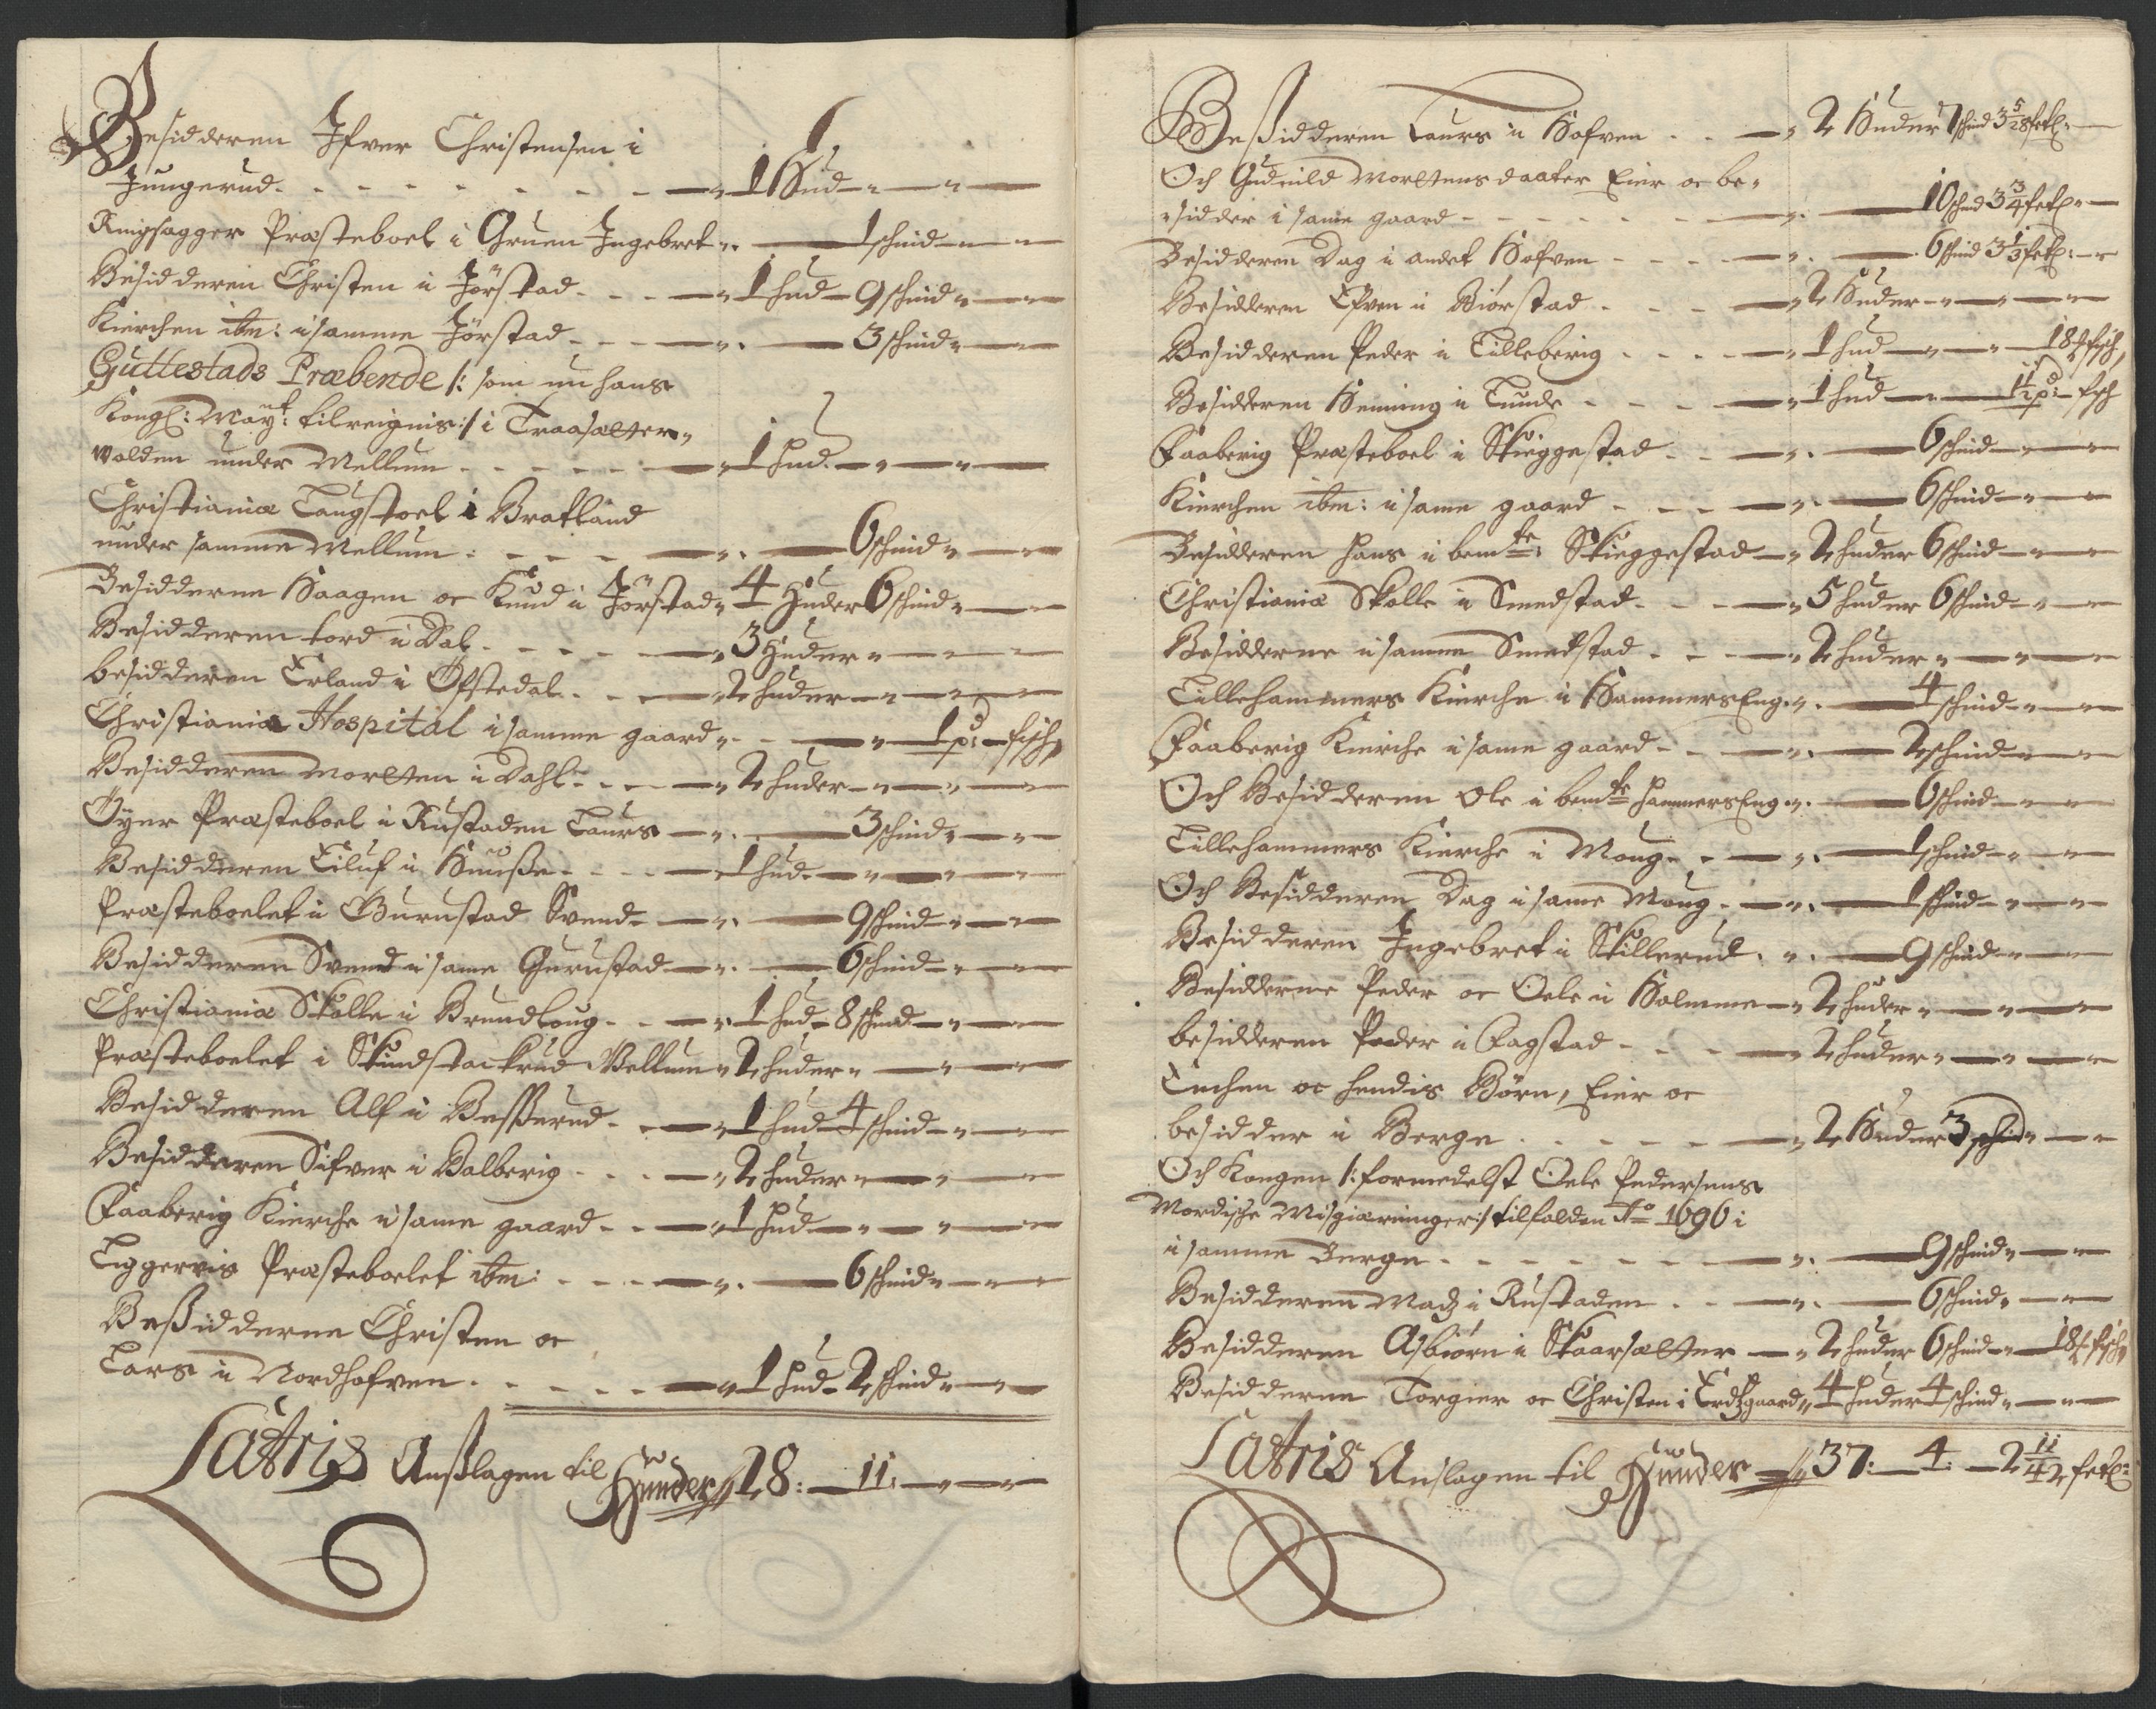 Besidderen Ifver Christensen i
Jungerud - - - - - - - - 1 Hud
Ringsagger Præsteboel i Gruen Ingebret - 1 schind
Besidderen Christen i Jörstad - - - 1 hud 9 schind
Kierchen ibm: i samme Jörstad - - - 3 schind
Guttestads Præbende /: som nu hans
Kongl: Mayt: tilreignis :/ i Traasætter
volden under Mellum - - - - - 1 hud
Christiania Laugstoel i Bratland
under samme Mellum: - - - 6 schind
Besidderne Haagen oc Knud i Jörstad 4 Huder 6 schind
Besidderen tord i Dal - - - - 3 Huder
besidderen Erland i Öfstedal - - 2 huder
Christiania Hospital i samme gaard - - 1 pd: fisch
Besidderen Morten i Dahl - - - 2 huder
Öyer Præsteboel i Rustaden Laurs - 3 schind
Besidderen Eiluf i - - - 1 hud
Præsteboelet i Gurustad Svend - 9 schind
Besidderen Svend i same Gurustad - 6 schind
Christiania Skolle i Brundloug - - 1 hud 8 schind
Præsteboelet i Skindstackrud Vellum 2 huder
Besidderen Alf i Besserud - - 1 hud 4 schind
Besidderen Sifver i Balberig - - - 2 huder
Faaberig Kierche i same gaard - - 1 hud
Præsteboelet ibm: - - - 6 schind
Beßidderne Christen oc
Lars i Nordhofven - - - - - 1 hud 2 schind
Latris Anßlagen til Hunder 28: 11:
Beßidderen Laurs i Hofven - - 2 Huder 7 schind 3 5/28 fetl:
Och Gudnild Mortens daater Eier oc be-
sidder i same gaard - - - - - 10 schind 3 3/4 fetl:
Besidderen Dag i andet Hofven - - - 6 schind 3 1/3 fetl:
Besidderen Efven i Biörstad - - - 2 Huder
Besidderen Peder i Lilleberig - - - 1 hud 18 fisch
Besidderen Henning i Lunde - - - 1 hud fisch
Faaberig Præsteboel i Skieggestad - - 6 schind
Kierchen ibm: i same gaard - - - 6 schind
Besidderen Hans i bemte: Skieggestad 2 huder 6 schind
Christiania Skolle i Smedstad - - - 5 huder 6 schind
Besidderne i samme Smedstad - - - 2 huder
Lillehammers Kierche i HammersEng - 4 schind
Faaberig Kierche i same gaard - - 2 schind
Och Besidderen Ole i bemte HammersEng - 6 schind
Lillehammers Kierche i Moug - - 1 schind
Och Besidderen Dag i same Moug - 1 schind
Besidderen Ingebret i Skillerud - 9 schind
Besidderne Peder oc Oele i Holmme 2 huder
besidderen Peder i Fagstad - - - 2 huder
Enchen oc hendis Börn, Eier oc
besidder i Berge - - - - - 2 Huder 3 schind
Och Kongen /: formedelst Oele Pedersens
Mordische Misgierninger :/ tilfalden Ao 1696 i
i samme Berge - - - - - - 9 schind
Besidderen Madz i Rustaden - - 6 schind
Besidderen Asbiörn i Skaarsætter 2 huder 6 schind 18 fisch
Besidderne Torgier oc Christen i gaard 4 huder 4 schind
Latris Anslagen til Hunder 37: 4: 2 11/42 fetl: